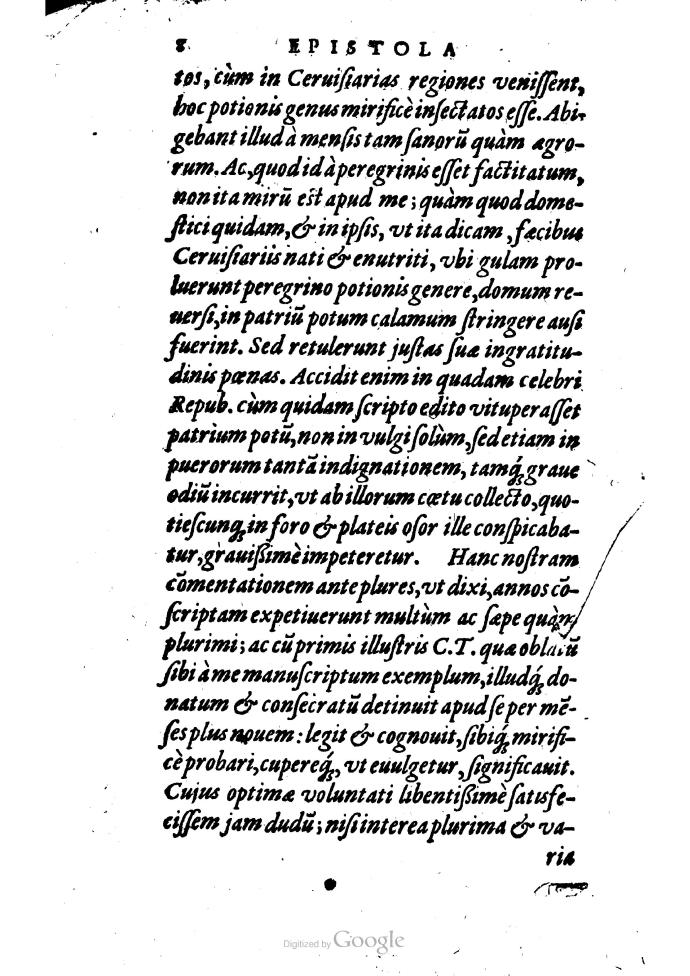 8 EPISTOLA
tos, cùm in Ceruiſiarias regiones veniſſent,
hoc potionis genus mirificè inſectatos eſſe. Abi-
gebant illud à menſis tam ſanorũ quàm ægro-
rum. Ac, quod id à peregrinis eſſet factitatum,
non ita mirũ eſt apud me; quàm quod dome-
ſtici quidam, & in ipſis, vt ita dicam, fæcibus
Ceruiſiariis nati & enutriti, vbi gulam pro-
luerunt peregrino potionis genere, domum re-
uerſi, in patriũ potum calamum ſtringere auſi
fuerint. Sed retulerunt juſtas ſuæ ingratitu-
dinis pœnas. Accidit enim in quadam celebri
Repub. cùm quidam ſcripto edito vituperaſſet
patrium potũ, non in vulgi ſolùm, ſed etiam in
puerorum tantã indignationem, tamq́ graue
odiũ incurrit, vt ab illorum cœtu collecto, quo-
tieſcunq́ in foro & plateis oſor ille conſpicaba-
tur, grauißimè impeteretur. Hanc noſtram
cõmentationem ante plures, vt dixi, annos cõ-
ſcriptam expetiuerunt multùm ac ſæpe quàm
plurimi; ac cũ primis illuſtris C.T. quæ oblatũ
ſibi à me manuſcriptum exemplum, illudq́ do-
natum & conſecratũ detinuit apud ſe per mẽ-
ſes plus nouem: legit & cognouit, ſibiq́ mirifi-
cè probari, cupereq́, vt euulgetur, ſignificauit.
Cujus optimæ voluntati libentißimè ſatisfe-
ciſſem jam dudũ; niſi interea plurima & va-
ria
Digitized by Google